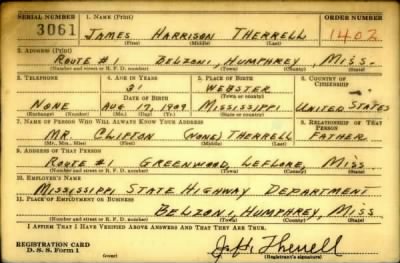 SERIAL NUMBER 1. NAME (Print) ORDER NUMBER
3061 JAMES HARRISON THERRELL 1402
(First) (Middle) (Last)
2. ADDRESS (Print)
ROUTE #1 BELZONI, HUMPHREY, MISS.
(Number and street or R. F. D. number) (Town) (County) (State)
3. TELEPHONE 4. AGE IN YEARS 5. PLACE OF BIRTH 6. COUNTRY OF CITIZENSHIP
31 WEBSTER
DATE OF BIRTH (Town or county)
NONE AUG 17, 1909 MISSISSIPPI UNITED STATES
(Exchange) (Number) (Mo.) (Day) (Yr.) (State or country)
7. NAME OF PERSON WHO WILL ALWAYS KNOW YOUR ADDRESS 8. RELATIONSHIP OF THAT PERSON
MR. CLIFTON (NONE) THERRELL FATHER
(Mr., Mrs., Miss) (First) (Middle) (Last)
9. ADDRESS OF THAT PERSON
ROUTE #1 GREENWOOD, LEFLORE, MISS
(Number and street or R. F. D. number) (Town) (County) (State)
10. EMPLOYER'S NAME
MISSISSIPPI STATE HIGHWAY DEPARTMENT
11. PLACE OF EMPLOYMENT OR BUSINESS
BELZONI, HUMPHREY, MISS
(Number and street or R. F. D. number) (Town) (County) (State)
I AFFIRM THAT I HAVE VERIFIED ABOVE ANSWERS AND THAT THEY ARE TRUE.
REGISTRATION CARD J. H. Therrell
D. S. S. Form 1 (over) (Registrant's signature)